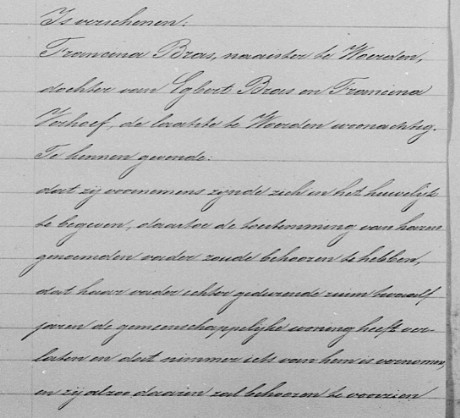 Is verschenen:
Francina Bras, naaister te Woerden,
dochter van Egbert Bras en Francina
Verhoef, de laatste te Woerden woonachtig.
Te kennen gevende:
dat zij voornemens zijnde zich in het huwelijk
te begeven, daartoe de toestemming van haren
genoemden vader zoude behooren te hebben,
dat haar vader echter gedurende ruim twaalf
jaren de gemeenschappelijke woning heeft ver-
laten en dat nimmer iets van hem is vernomen,
en zij alzoo daarin zal behooren te voorzien